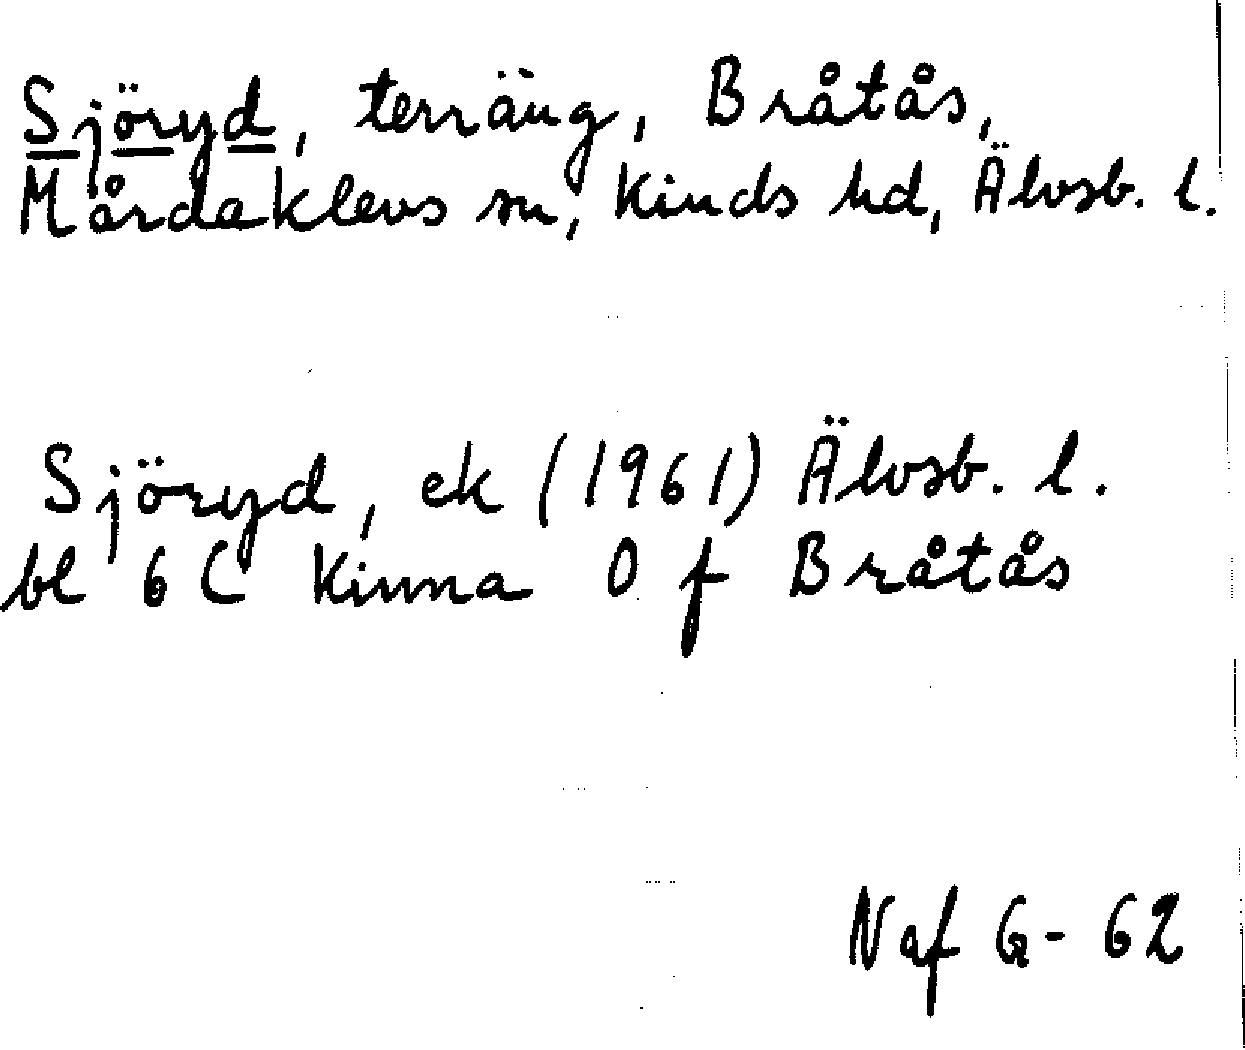 Sjöryd, terräng, Bråtås,
Mårdaklevs sn, Kinds hd, Älvsb. l.
Sjöryd, ek (1961) Älvsb. l.
bl 6 C Kinna O f Bråtås
Naf G- 62